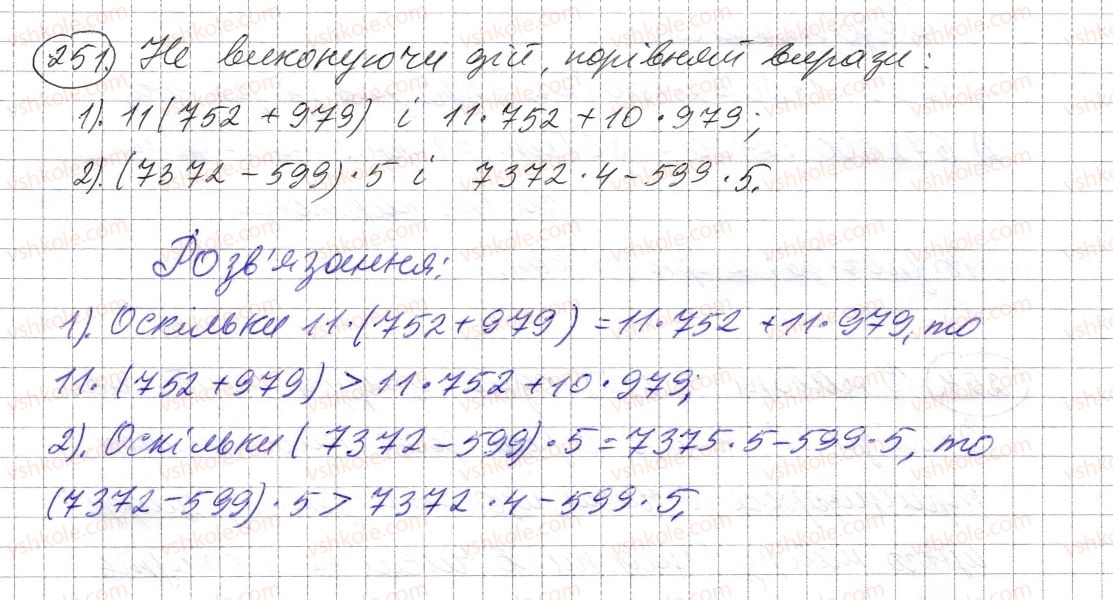 251. Не виконуючи дій, порівняй вирази:
1). 11(752 + 979) і 11·752 + 10·979;
2). (7372 - 599)·5 і 7372·4 - 599·5.
Розв'язання:
1). Оскільки 11·(752 + 979) = 11·752 + 11·979, то
11·(752 + 979) > 11·752 + 10·979;
2). Оскільки (7372 - 599)·5 = 7375·5 - 599·5, то
(7372 - 599)·5 > 7372·4 - 599·5.